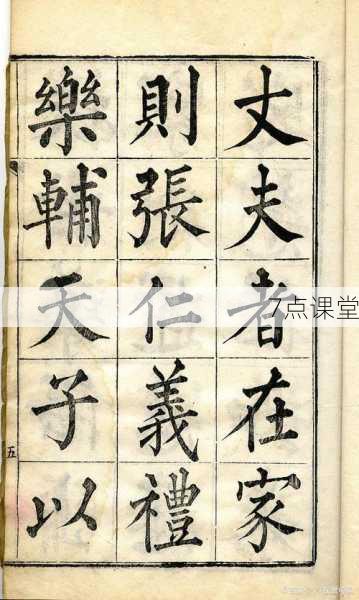 丈夫者在家
則張仁義禮
樂輔天子以
7点课堂
五